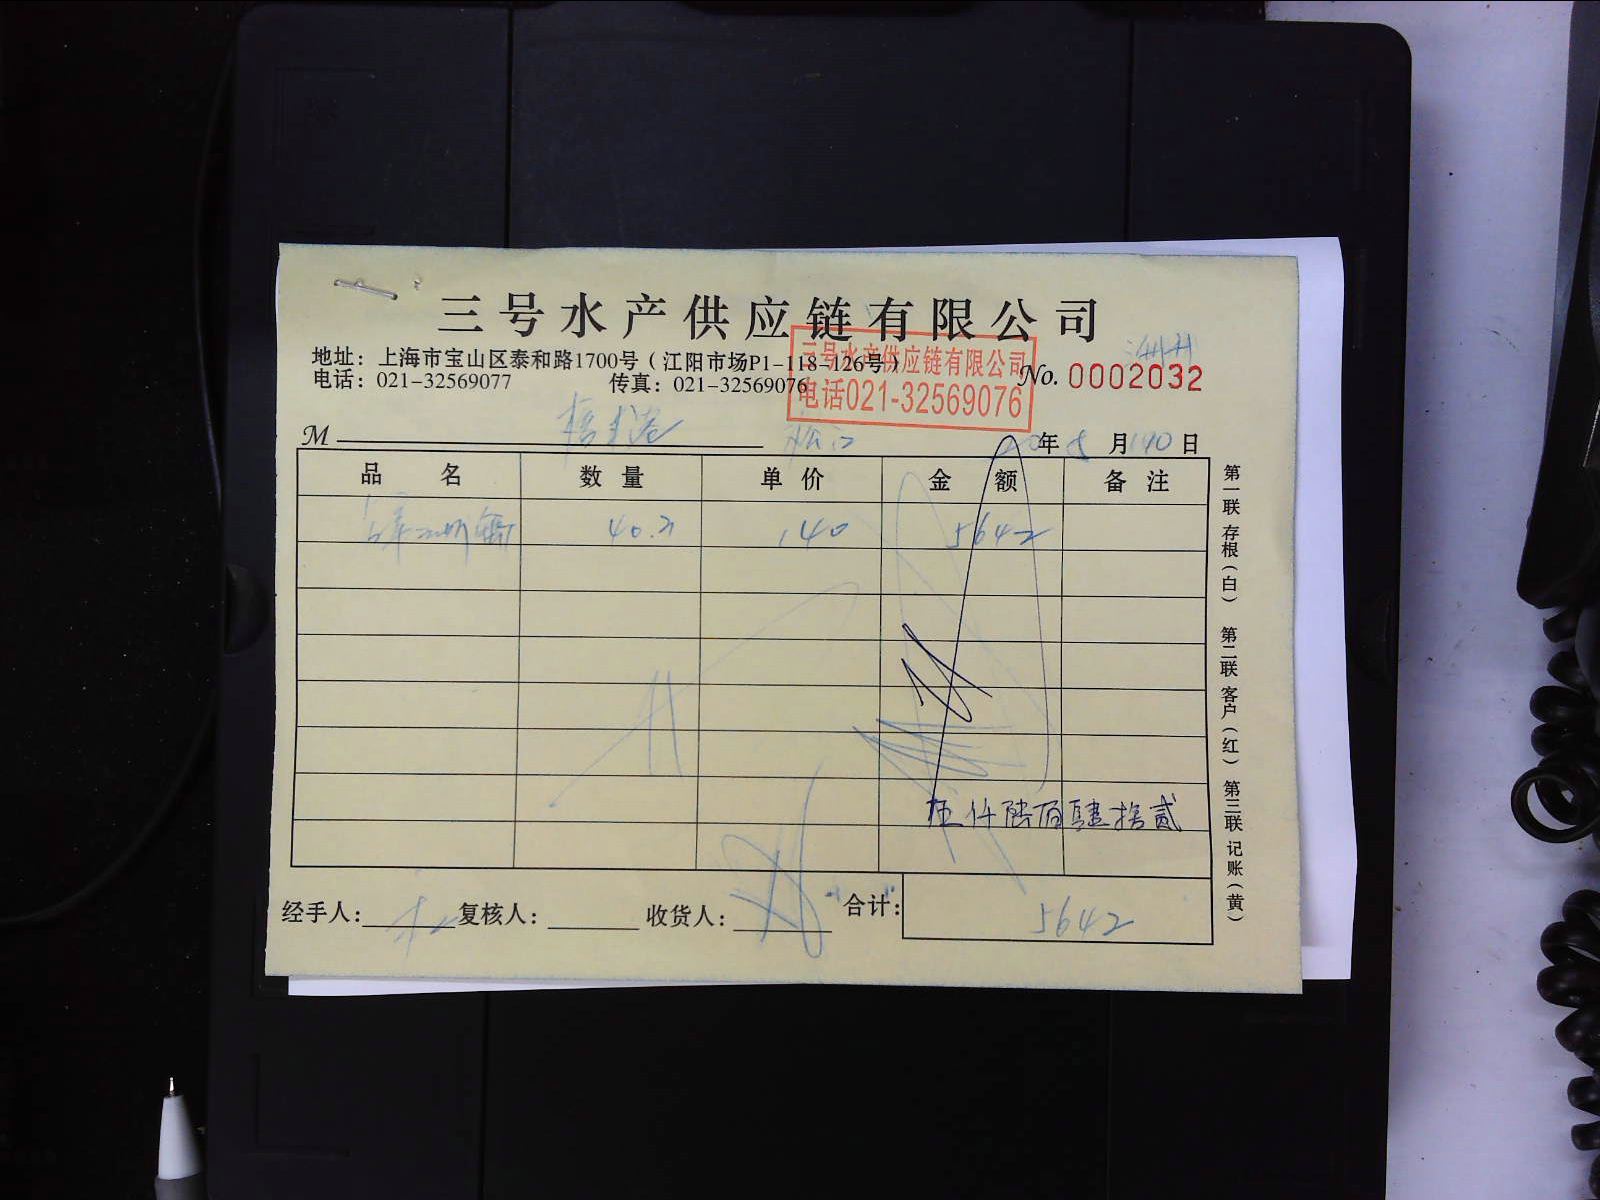 三号水产供应链有限公司
地址：上海市宝山区泰和路1700号（江阳市场P1-118-126号）
电话：021-32569077 传真：021-32569076
三号水产供应链有限公司
电话021-32569076
No. 0002032
M 松江 20年8月 日
品名 数量 单价 金额 备注
40.3 140 5642
伍仟陆佰肆拾贰
经手人： 复核人： 收货人： 合计： 5642
第一联 存根（白） 第二联 客户（红） 第三联 记账（黄）